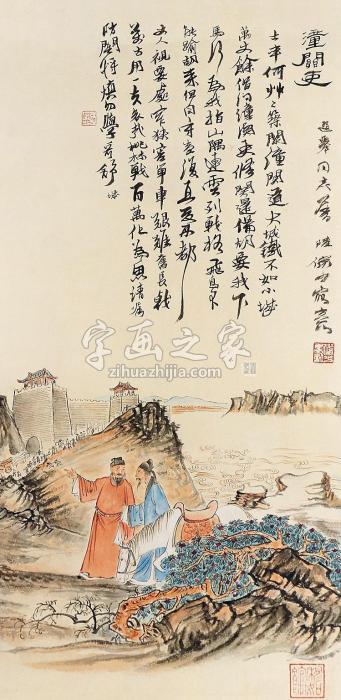 潼關吏
士卒何艸々築關潼關道大城鐵不如小城
萬丈餘借問潼關吏修關還備胡要我下
馬行為我指山隅連雲列戰格飛鳥不
能踰胡来但自守豈復憂西都
丈人視要處窄狹容單車艱難奮長戟
萬古用一夫哀哉桃林戰百萬化為魚請囑
防關將慎勿學哥舒
同志属 陸儼少寫
字画之家
zihuazhijia.com